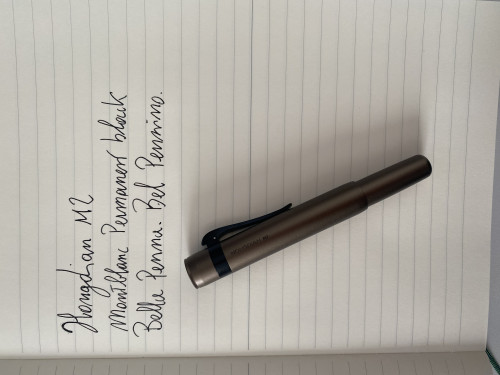 Hongdian M2
Montblanc Permanent black
Bella Penna. Bel Pennino.